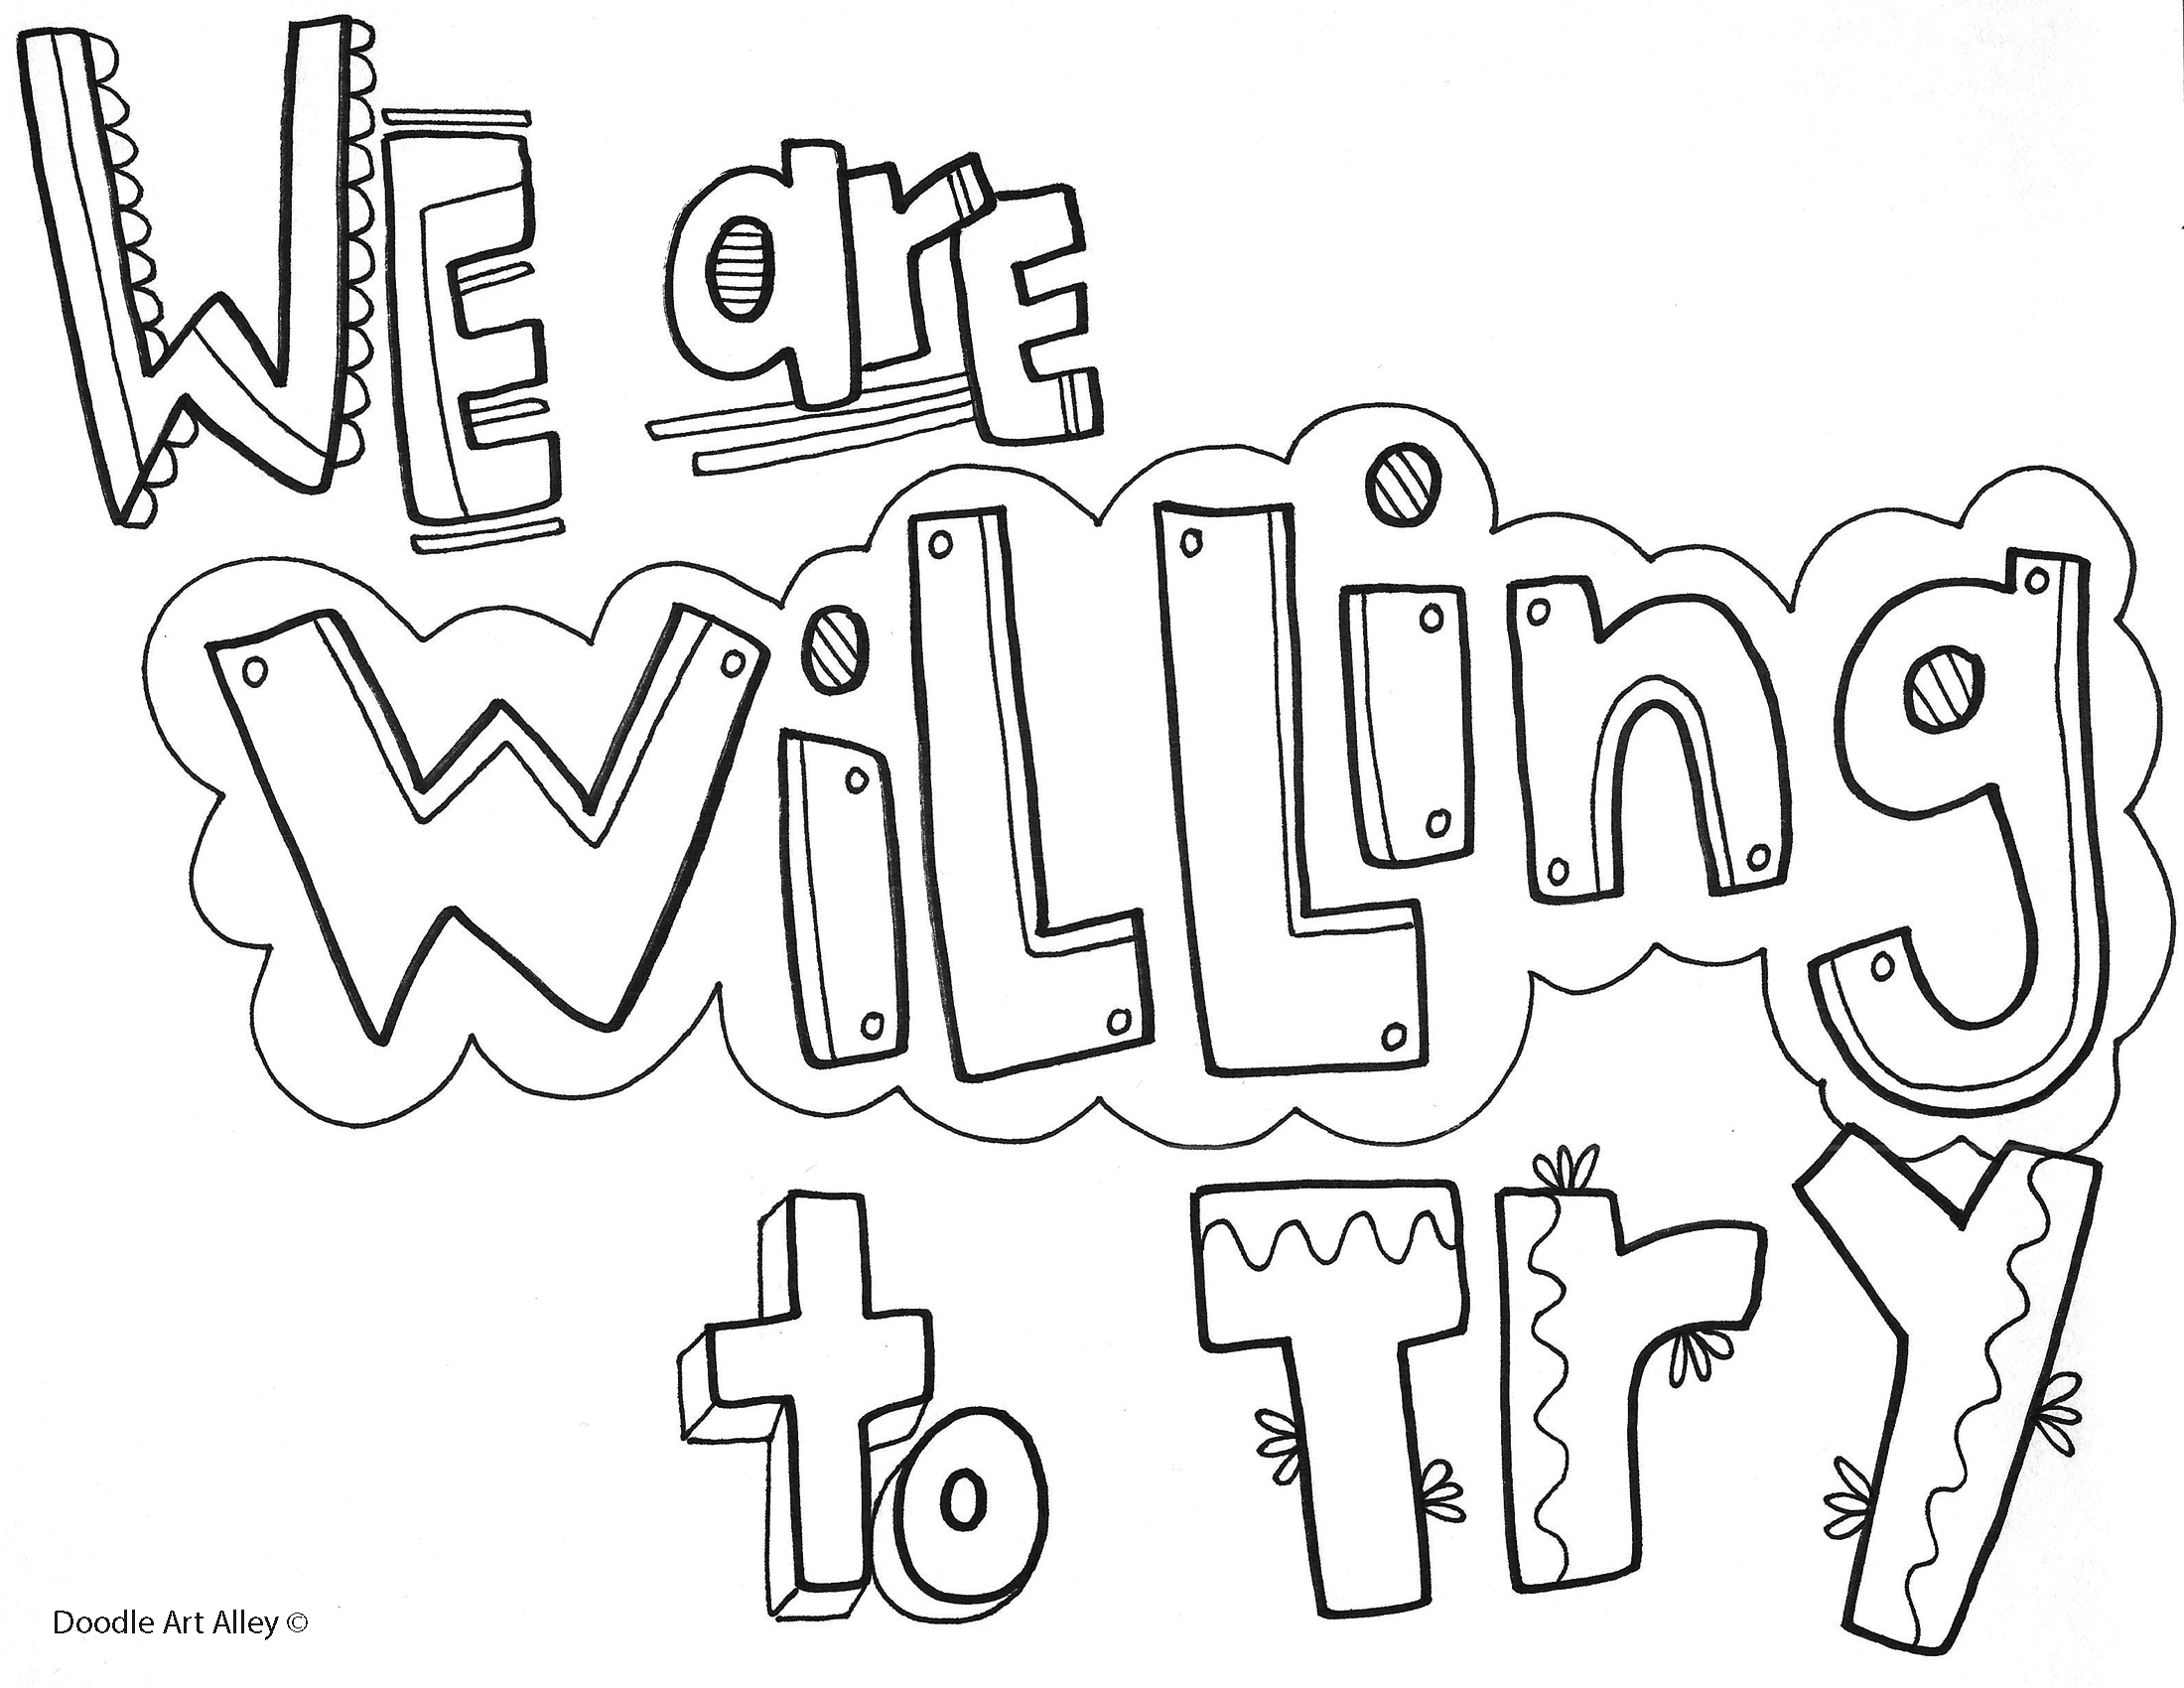 WE are
WiLLing
to Try
Doodle Art Alley ©